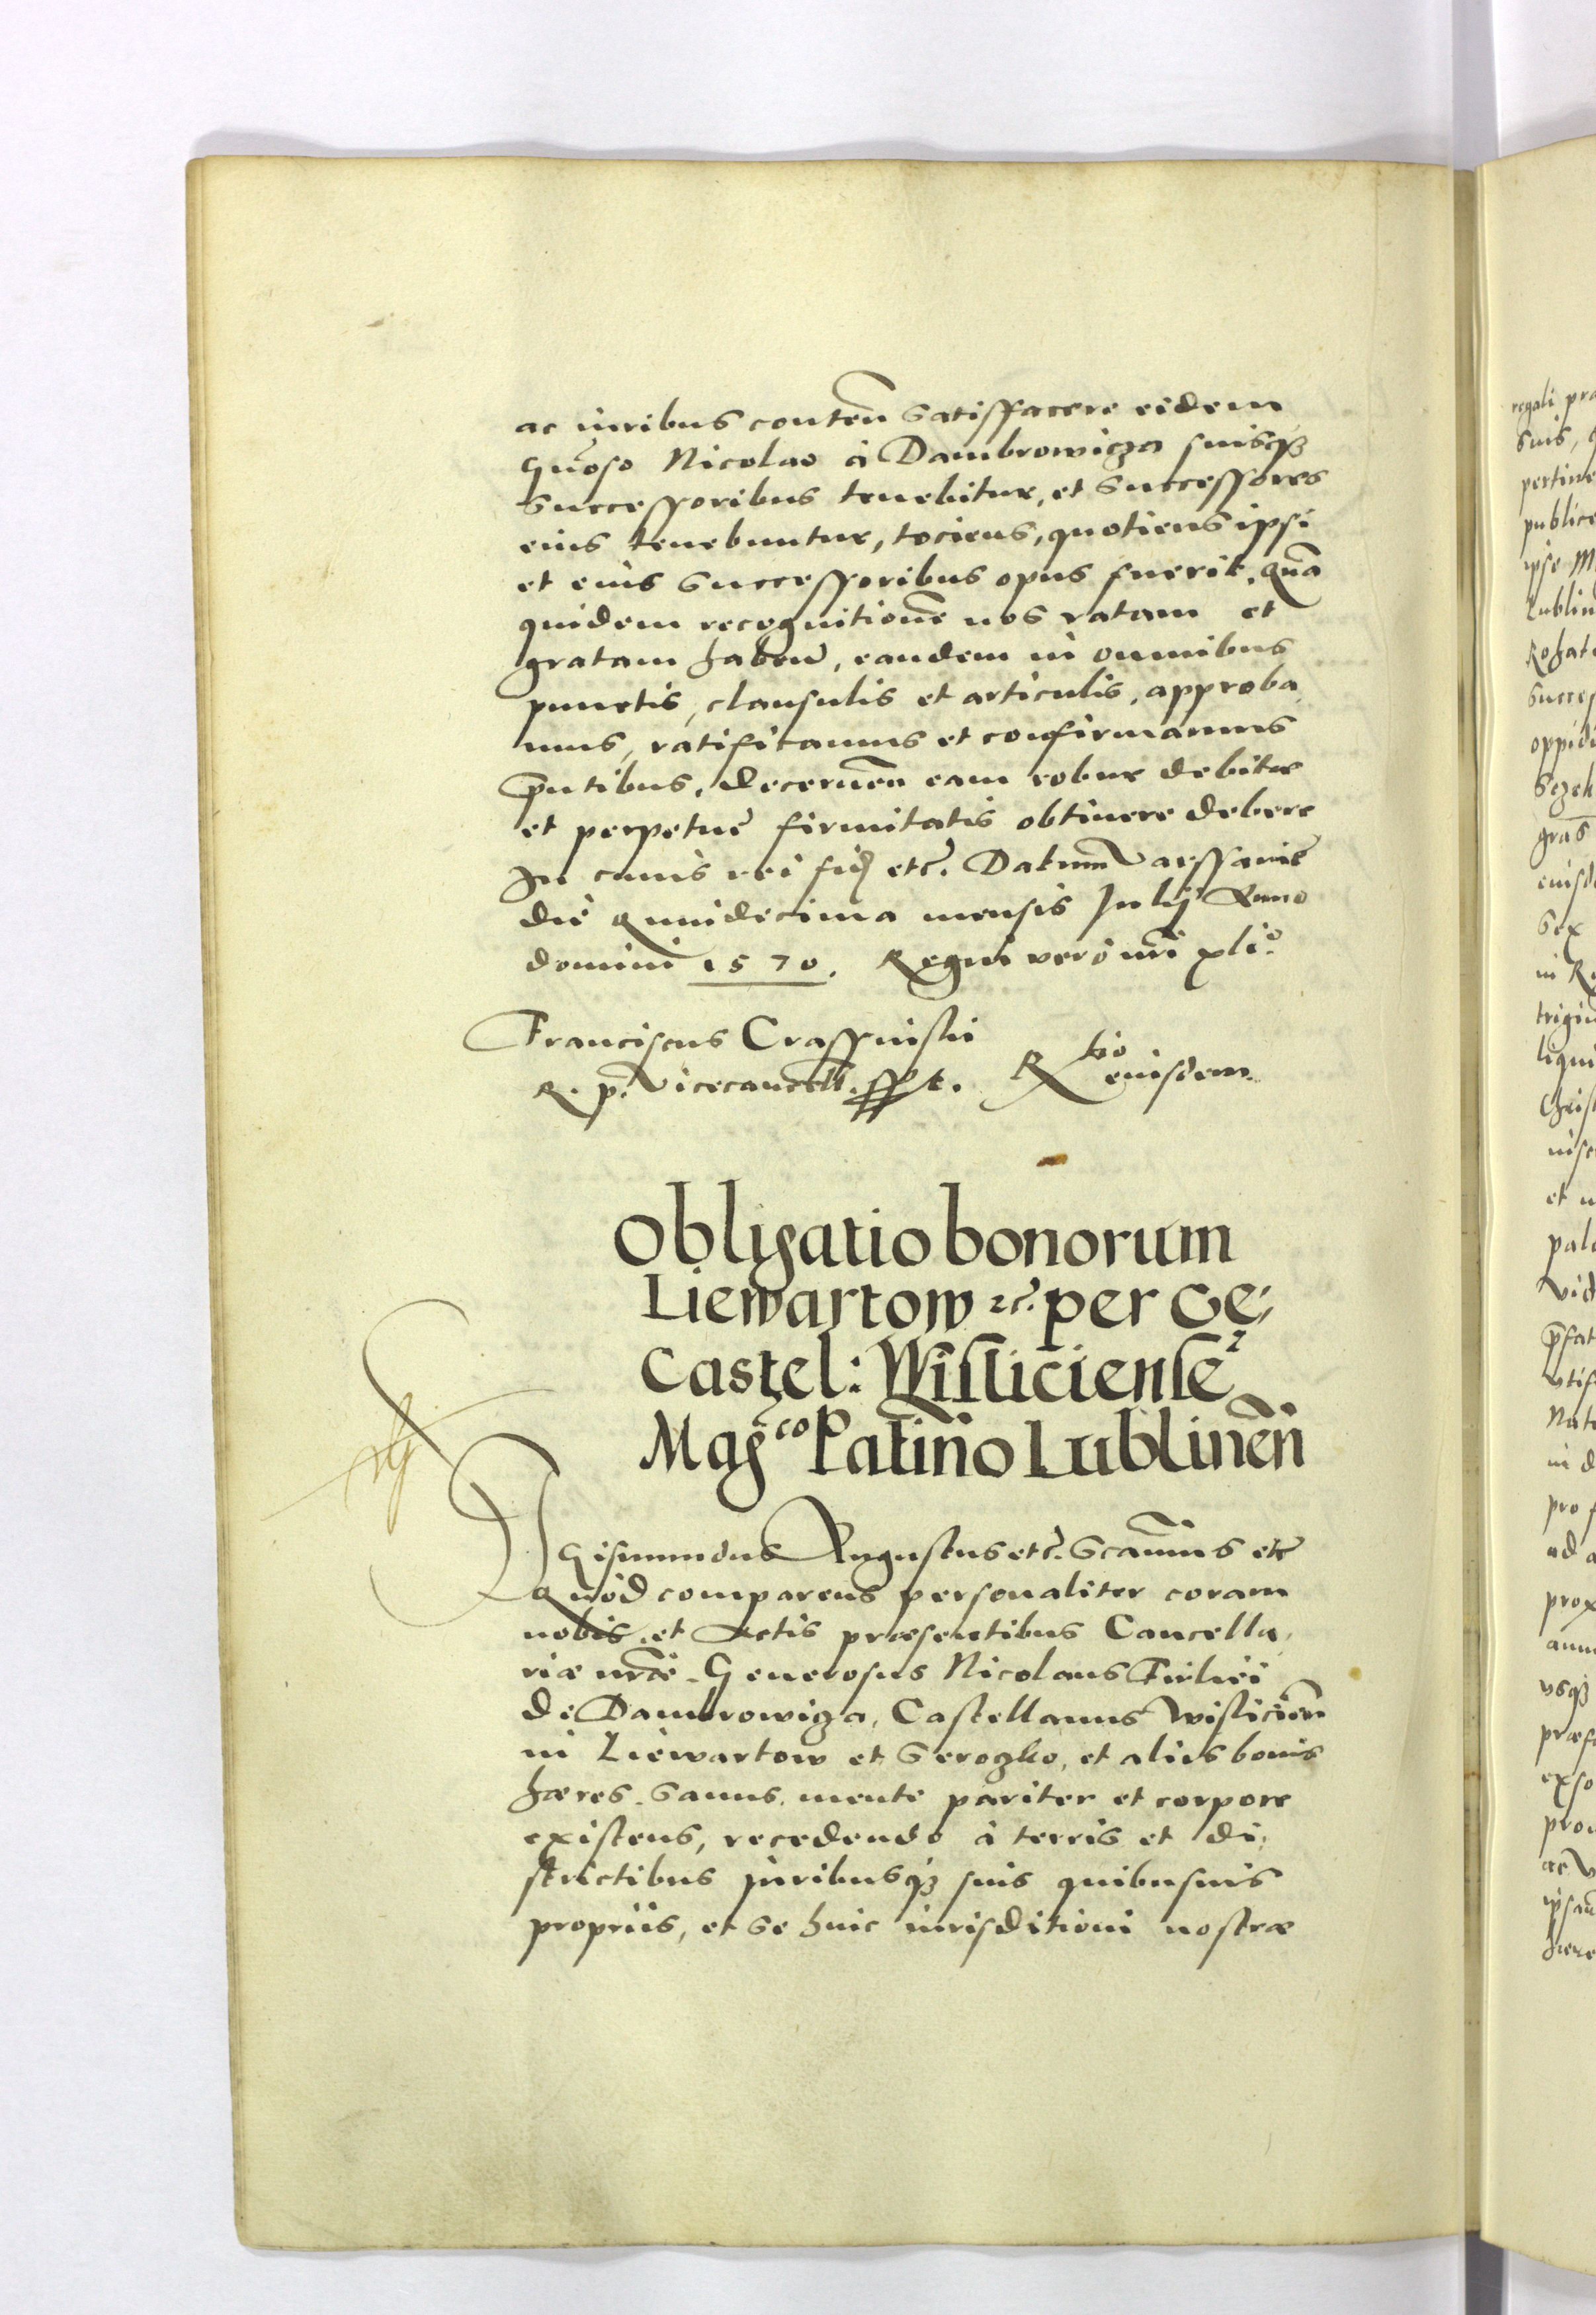 ac iuribus conteñ satisffacere eidem
Gnoso Nicolao à Dambrowicza suisq3
successoribus tenebitur, et successores
eius tenebuntur, tociens, quotiens ipsi
et eius successoribus opus fuerit. Quã
quidem recognitionẽ nos ratam et
gratam habeñ, eandem in omnibus
punctis, clausulis et articulis, approba
mus, ratificamus et confirmamus
p̃ntibus, decerneñ eam robur debitæ
et perpetuẽ firmitatis obtinere debere
In cuius rei fid̃ etc̃. Datum Varssaviẽ
die quindecima mensis Julij Anno
domini 1570. Regni verò nr̃i xli.º
Franciscus Crassinskii
R. p. Vicecancell. sst. Rtio eiusdem
Obligatio bonorum
Liewartow &c̃. per Ge,
Castel: Wisliciensẽ
Magco Palatiño Lublineñ
Sigismundus Augustus etc̃. Scamus etc̃
Quod comparens personaliter coram
nobis, et Actis præsentibus Cancella,
riæ nr̃æ. Generosus Nicolaus Firlièi
de Dambrowicza, Castellanus Wislicieñ
in Liewartow et Seroczko, et aliis bonis
hæres. Sanus mente pariter et corpore
existens, recedendo à terris et di,
strictibus iuribusq3 suis quibusuis
propriis, et se huic iurisditioni nostræ
regali præ
suis, q
pertine
publice
ipse M
Lublin
Rohat
succes
oppidi
Szczek
gras
eiusd
sex
in R
trigin
liqui
Chris
nise
et n
pala
vid
p̃fat
vtif
Nat
in d
pro f
ad a
prox
annu
vsq3
præf
exso
prou
ac v
ipsam